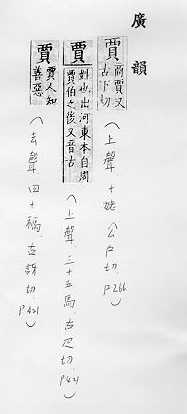 廣韻
賈
商賈又
古下切
(上聲 十姥 公戶切 P.266)
賈
姓也出河東本自周
賈伯之後又音古
(上聲 三十五馬 古疋切 P.421)
賈
賈人知
善惡
(去聲 四十禡 古訝切 P.421)